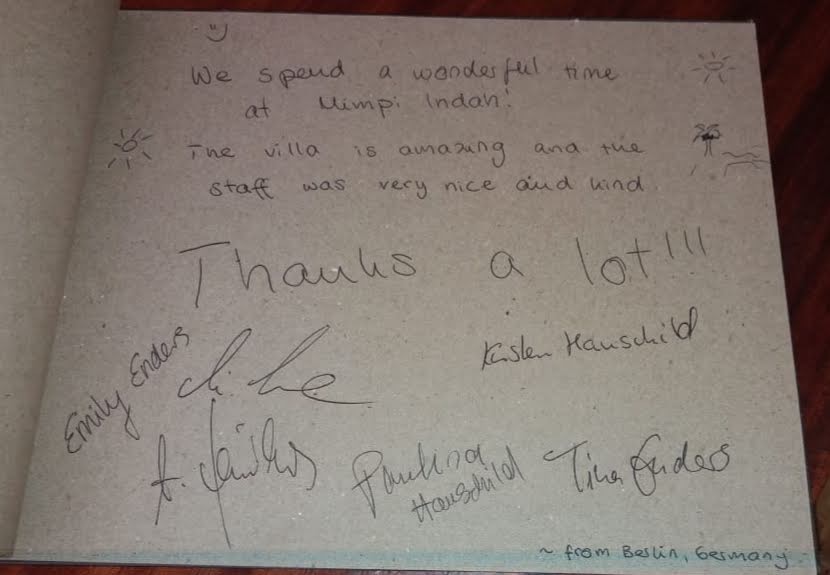 We spend a wonderful time
at Mimpi Indah!
The villa is amazing and the
staff was very nice and kind
Thanks a lot!!!
Emily Enders
Hauschild
Paulina
Hauschild
Tina Enders
~ from Berlin, Germany